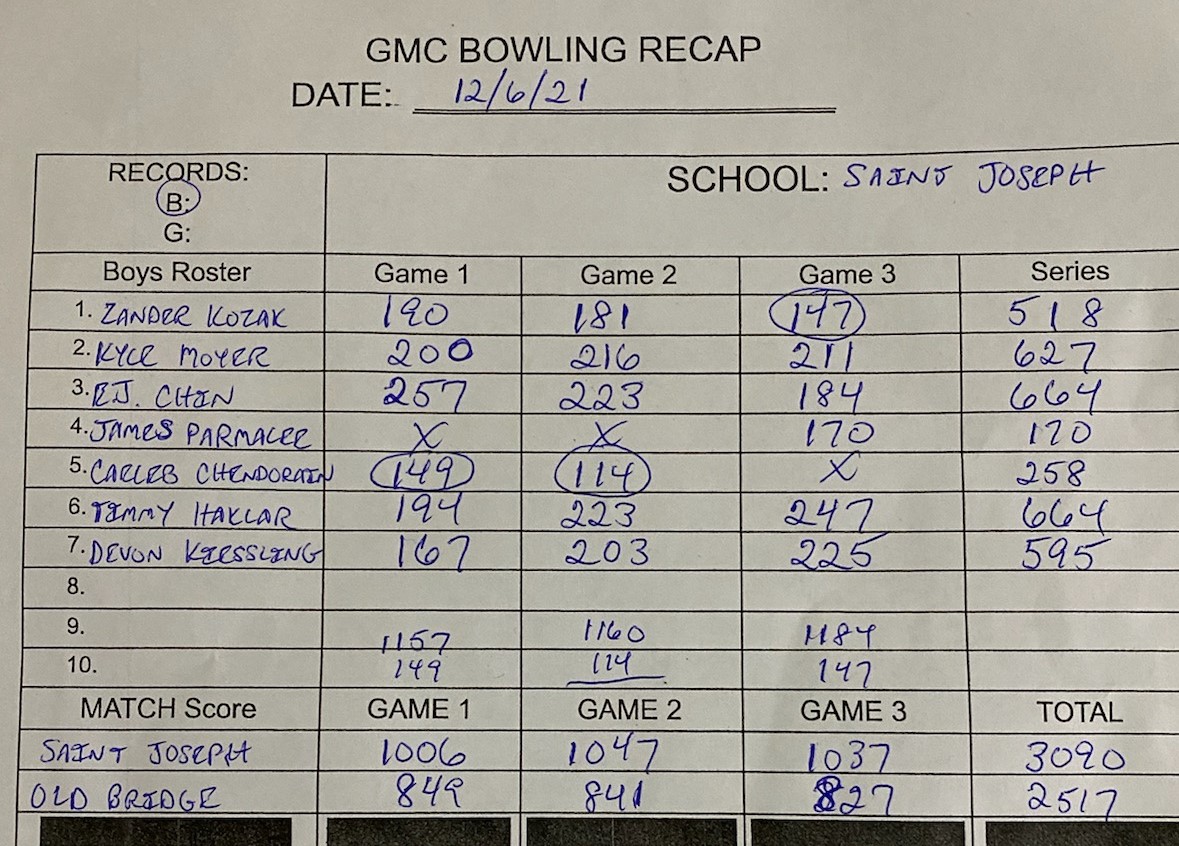 GMC BOWLING RECAP
DATE: 12/6/21
RECORDS:
B:
G:
SCHOOL: SAINT JOSEPH
Boys Roster Game 1 Game 2 Game 3 Series
1. ZANDER KOZAK 190 181 147 518
2. KYLE MOYER 200 216 211 627
3. RJ. CHIN 257 223 184 664
4. JAMES PARMALEE X X 170 170
5. CAELEB CHENDORAIN 149 114 X 258
6. TIMMY HAKLAR 194 223 247 664
7. DEVON KIESSLING 167 203 225 595
8.
9. 1157 1160 1184
10. 149 114 147
MATCH Score GAME 1 GAME 2 GAME 3 TOTAL
SAINT JOSEPH 1006 1047 1037 3090
OLD BRIDGE 849 841 827 2517